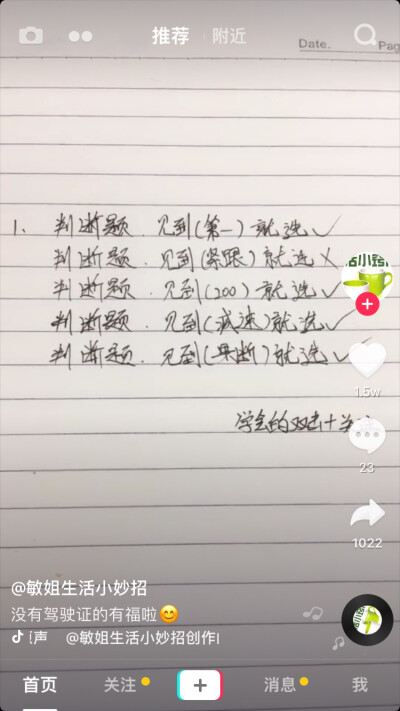 推荐 附近
Date.
Pag
1. 判断题. 见到(第一)就选✓
判断题. 见到(紧跟)就选✗
判断题. 见到(200)就选✓
判断题. 见到(减速)就选✓
判断题. 见到(果断)就选✓
学会的双击+关
活小妙
1.5w
23
1022
@敏姐生活小妙招
没有驾驶证的有福啦😊
声 @敏姐生活小妙招创作
首页 关注 消息 我